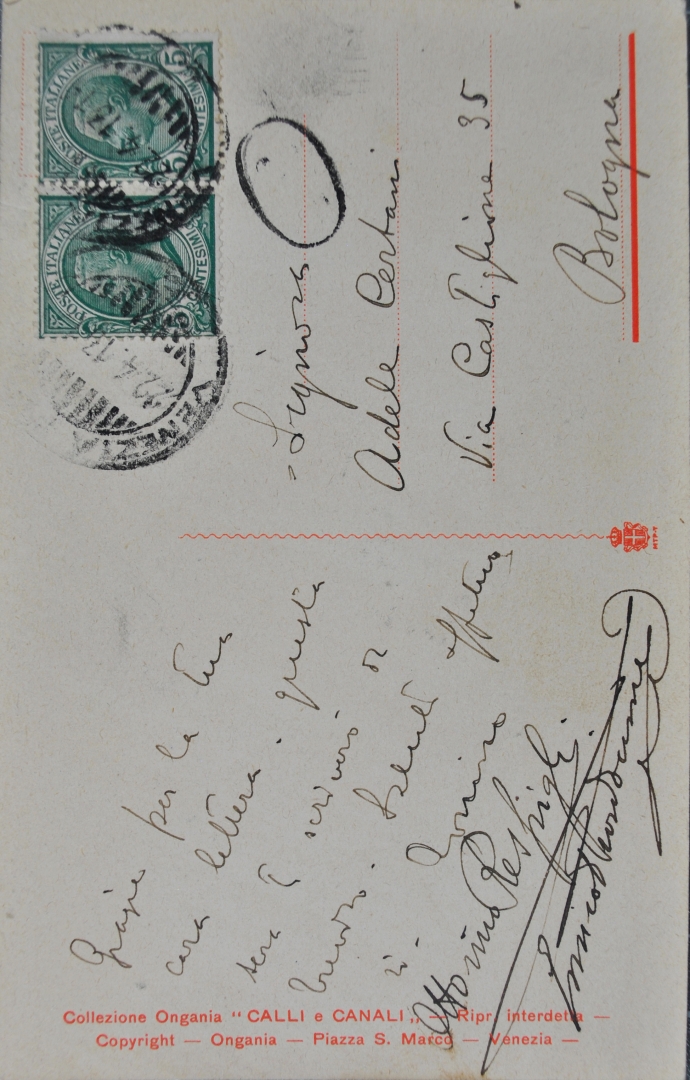 Grazie per la tua
cara lettera. questa
sera ti scriverò di
nuovo. Saluti affettuo
si.
Ottorino Respighi.
Signora
Adele Certani
Via Castiglione 35
Bologna
POSTE ITALIANE
CENTESIMI 5
POSTE ITALIANE
CENTESIMI
VENEZIA
22.4.13
Collezione Ongania "CALLI e CANALI„ — Ripr. interdetta —
Copyright — Ongania — Piazza S. Marco — Venezia —